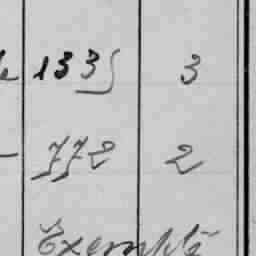 1335 3
772 2
Exempté